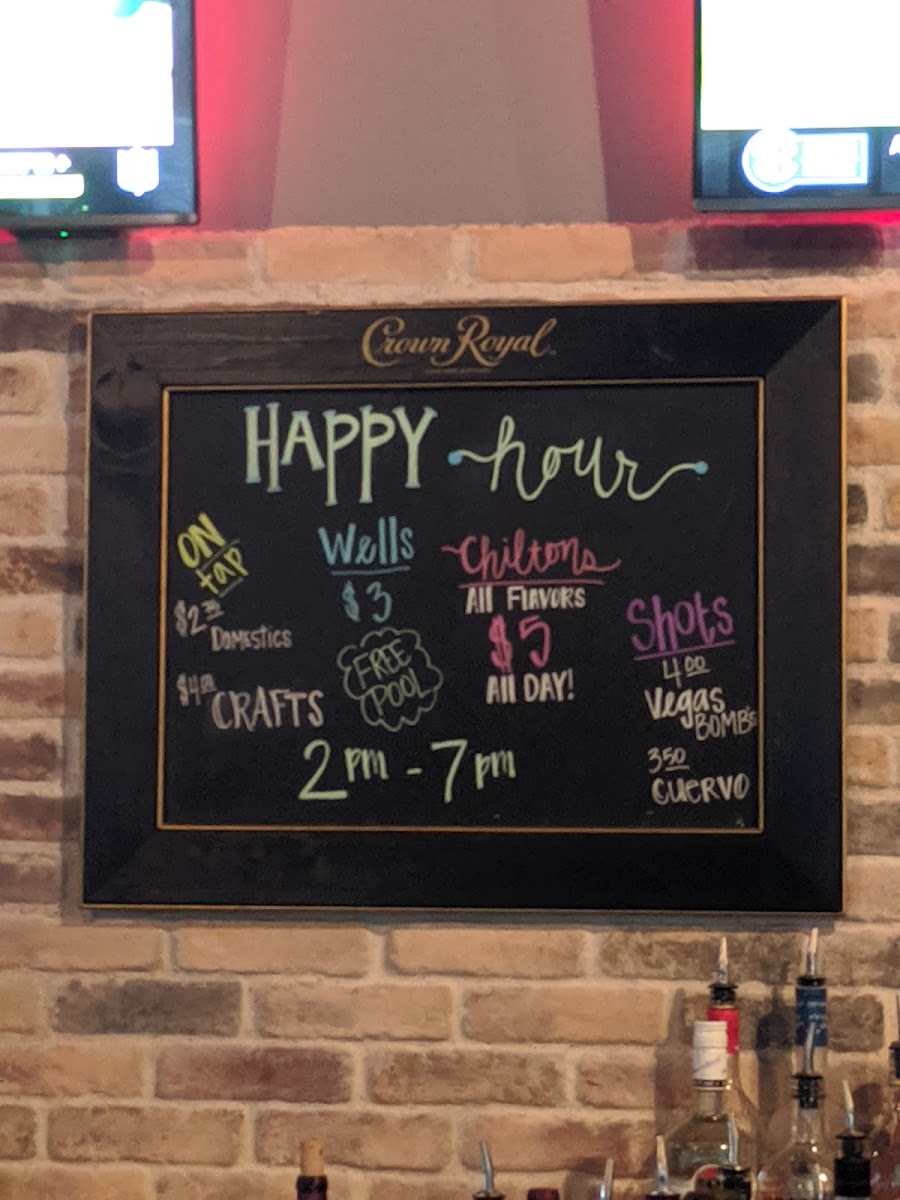 NFL
Crown Royal
HAPPY hour
ON
tap
$2.75
DOMESTICS
$4.00
CRAFTS
Wells
$3
FREE
POOL
Chiltons
All FLAVORS
$5
All DAY!
Shots
4.00
Vegas
BOMB's
3.50
CUERVO
2pm - 7pm